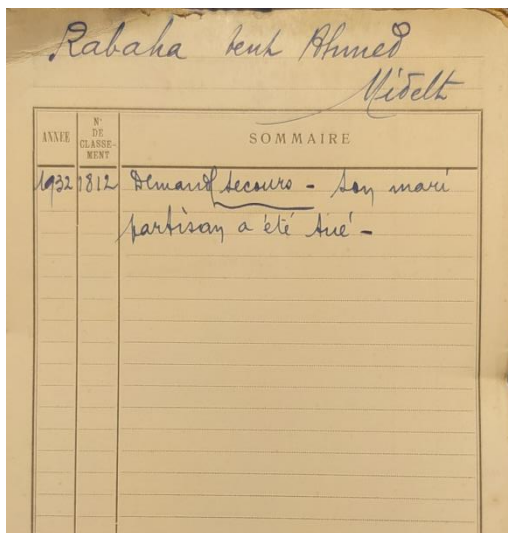 Rabaha bent Ahmed
Midelt
ANNÉE
N°
DE
CLASSE-
MENT
SOMMAIRE
1932 1812 Demand secours - son mari
partisan a été tué -